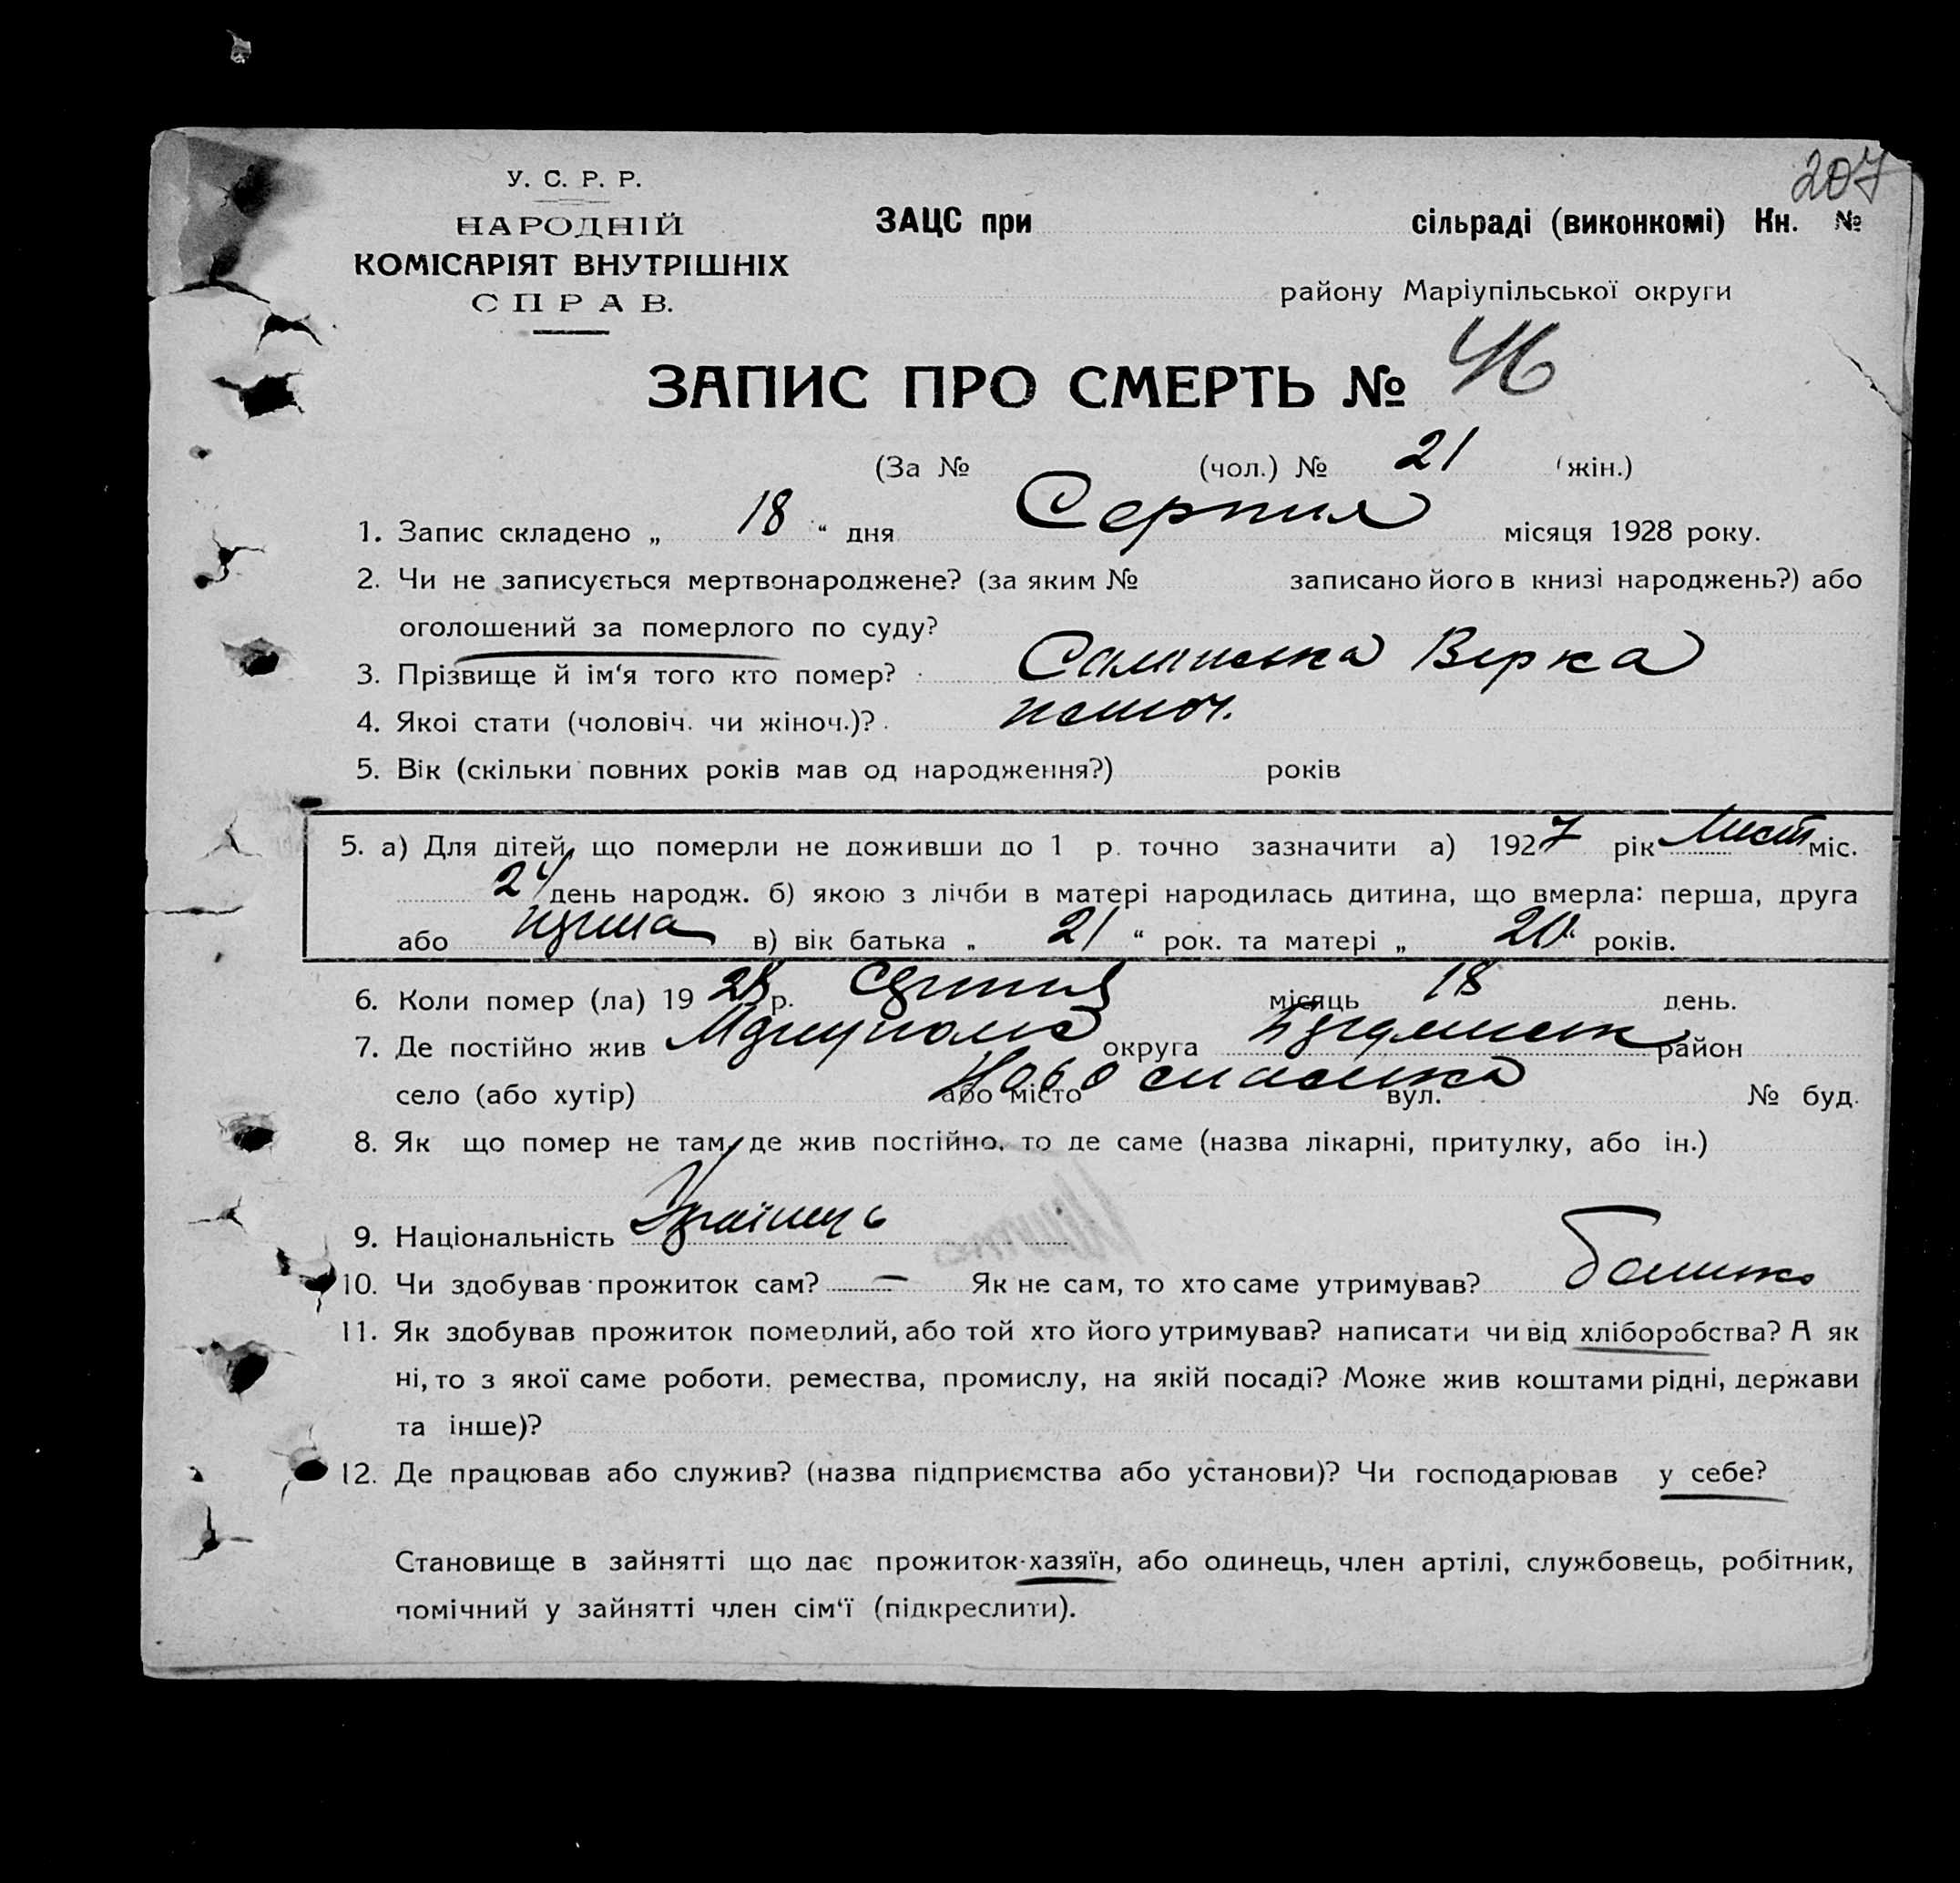 207
У. С. Р. Р.
НАРОДНІЙ
КОМІСАРІЯТ ВНУТРІШНІХ
СПРАВ.
ЗАЦС при сільраді (виконкомі) Кн. №
району Маріупільської округи
ЗАПИС ПРО СМЕРТЬ № 46
(За № (чол.) № 21 (жін.)
1. Запис складено „ 18 “ дня Серпня місяця 1928 року.
2. Чи не записується мертвонароджене? (за яким № записано його в книзі народжень?) або
оголошений за померлого по суду?
3. Прізвище й ім‘я того кто помер? Вєрка
4. Якоі стати (чоловіч. чи жіноч.)? жіноч.
5. Вік (скільки повних років мав од народження?) років
5. а) Для дітей, що померли не доживши до 1 р. точно зазначити а) 1927 рік Лист міс.
24 день народж. б) якою з лічби в матері народилась дитина, що вмерла: перша, друга
або перша в) вік батька „ 21 “ рок. та матері „ 20 “ років.
6. Коли помер (ла) 19 28 р. Серпня місяць 18 день.
7. Де постійно жив округа район
село (або хутір) або місто Новоспасівка вул. № буд.
8. Як що помер не там, де жив постійно, то де саме (назва лікарні, притулку, або ін.)
9. Національність Українець
10. Чи здобував прожиток сам? — Як не сам, то хто саме утримував? Батько
11. Як здобував прожиток померлий, або той хто його утримував? написати чи від хліборобства? А як
ні, то з якої саме роботи, ремества, промислу, на якій посаді? Може жив коштами рідні, держави
та інше)?
12. Де працював або служив? (назва підприємства або установи)? Чи господарював у себе?
Становище в зайнятті що дає прожиток-хазяїн, або одинець, член артілі, службовець, робітник,
помічний у зайнятті член сім‘ї (підкреслити).